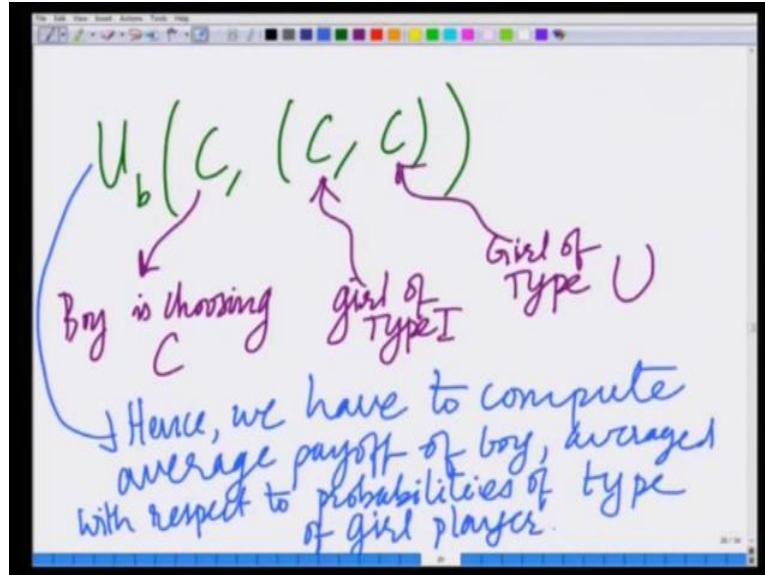 File Edit View Insert Actions Tools Help
U_b (C, (C, C))
Boy is choosing C
girl of Type I
Girl of Type U
Hence, we have to compute
average payoff of boy, averaged
with respect to probabilities of type
of girl player.